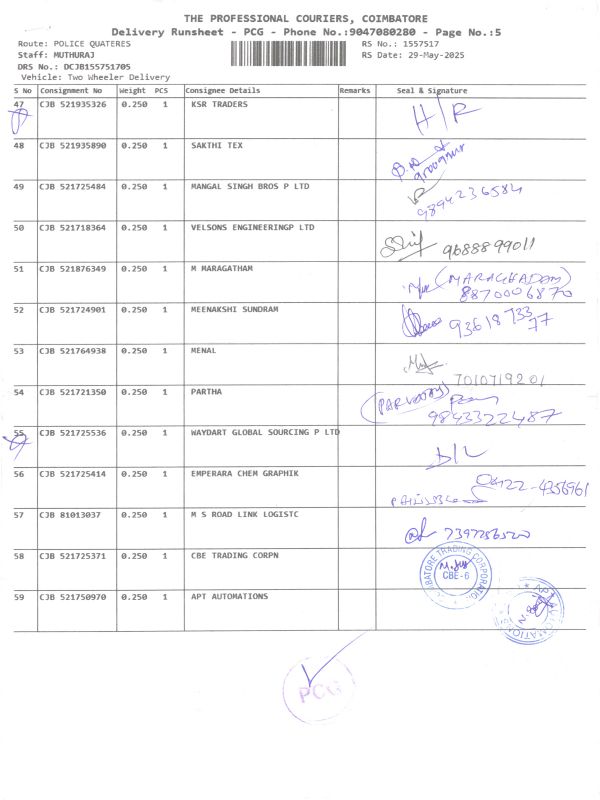 THE PROFESSIONAL COURIERS, COIMBATORE
Delivery Runsheet - PCG - Phone No.:9047080280 - Page No.:5
Route: POLICE QUATERES RS No.: 1557517
Staff: MUTHURAJ RS Date: 29-May-2025
DRS No.: DCJB155751705
Vehicle: Two Wheeler Delivery
S No Consignment No Weight PCS Consignee Details Remarks Seal & Signature
47 CJB 521935326 0.250 1 KSR TRADERS H/R
48 CJB 521935890 0.250 1 SAKTHI TEX
49 CJB 521725484 0.250 1 MANGAL SINGH BROS P LTD 9894236584
50 CJB 521718364 0.250 1 VELSONS ENGINEERINGP LTD 9688899011
51 CJB 521876349 0.250 1 M MARAGATHAM (MARAGHADAM)
8870006870
52 CJB 521724901 0.250 1 MEENAKSHI SUNDRAM 93618733
77
53 CJB 521764938 0.250 1 MENAL
7010719201
54 CJB 521721350 0.250 1 PARTHA
9843322487
55 CJB 521725536 0.250 1 WAYDART GLOBAL SOURCING P LTD D/L
56 CJB 521725414 0.250 1 EMPERARA CHEM GRAPHIK 0422-4356961
57 CJB 81013037 0.250 1 M S ROAD LINK LOGISTC 7397756520
58 CJB 521725371 0.250 1 CBE TRADING CORPN
CBE-6
59 CJB 521750970 0.250 1 APT AUTOMATIONS
PCG